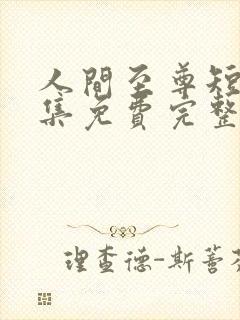 人間至尊短
集免費完整
理查德-斯蓍芬